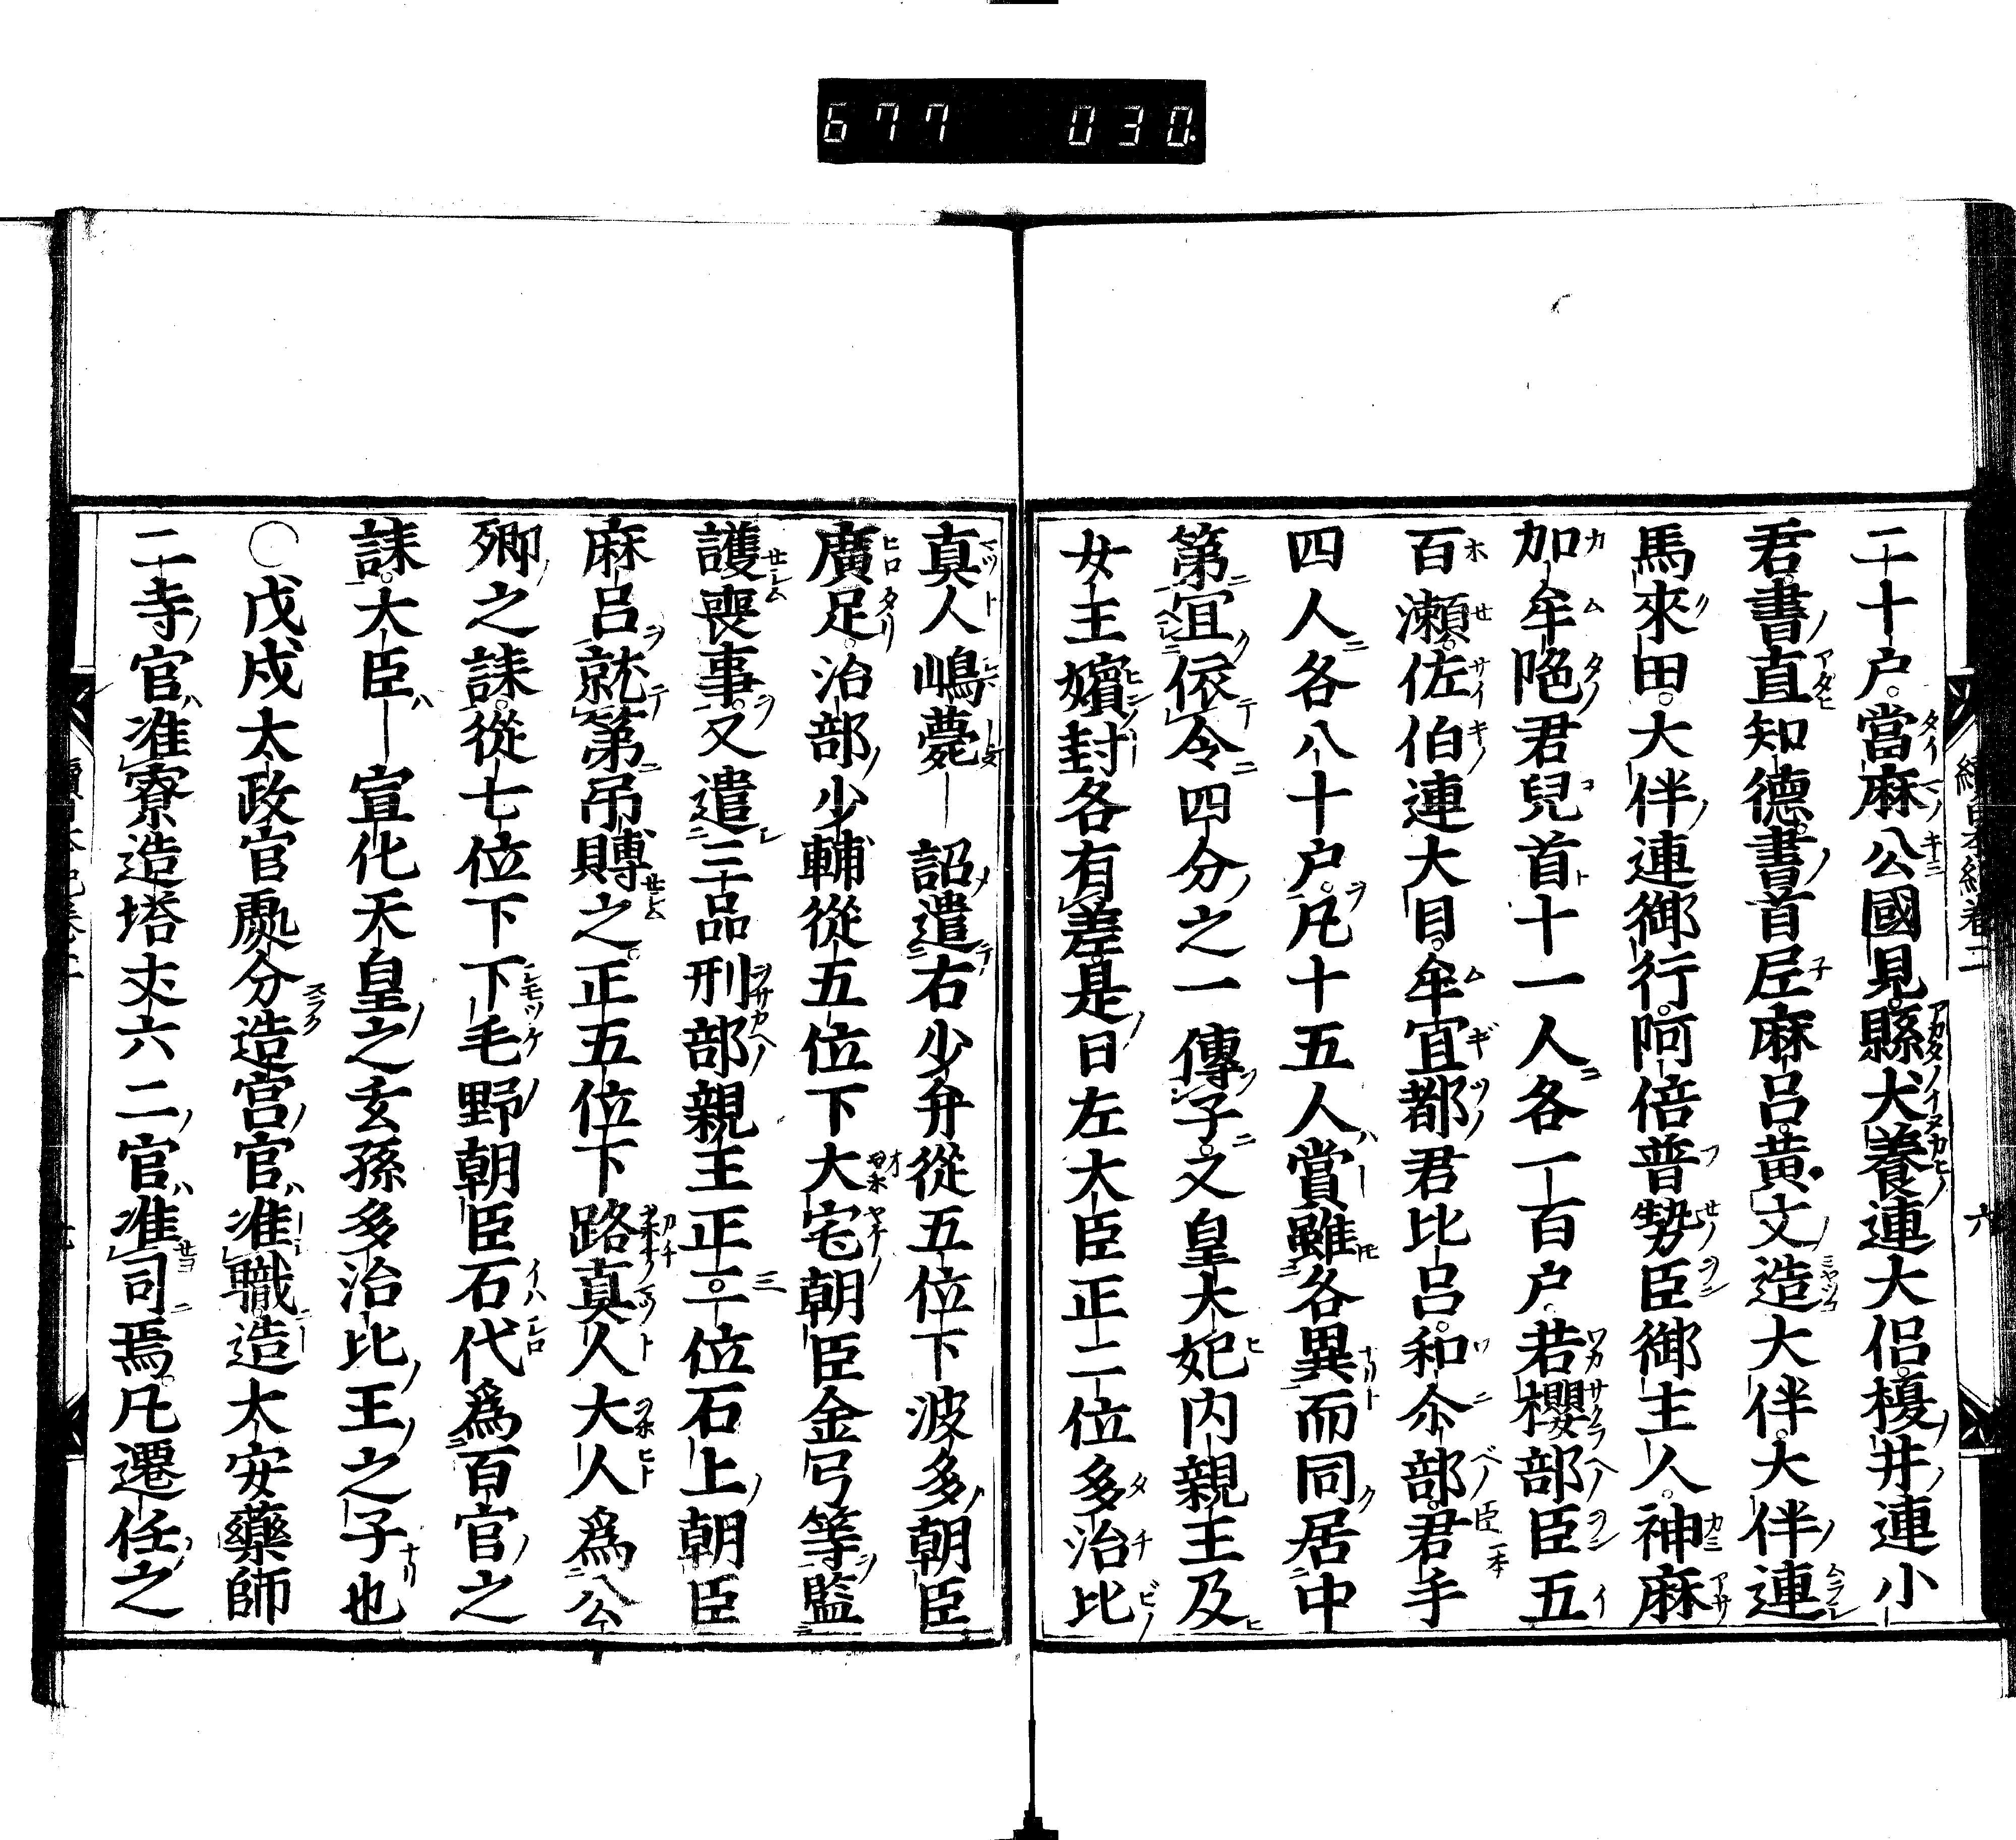 677 030
續日本紀卷二 六
二十戸。當麻公國見。縣犬養連大侶。榎井連小
君。書直知德。書首尼麻呂。黃文造大伴。大伴連
馬來田。大伴連御行。阿倍普勢臣御主人。神麻
加牟陁君兒首十一人各一百戸。若櫻部臣五
百瀬。佐伯連大目。牟宜都君比呂。和尒部君手
四人各八十戸。凡十五人賞雖各異而同居中
第宜依令四分之一傳子。又皇大妃内親王及
女王嬪封各有差。是日左大臣正二位多治比
真人嶋薨 詔遣右少弁從五位下波多朝臣
廣足。治部少輔從五位下大宅朝臣金弓等監
護喪事。又遣三品刑部親王正二位石上朝臣
麻呂就第吊賻之。正五位下路真人大人爲公
卿之誄。從七位下下毛野朝臣石代爲百官之
誄。大臣 宣化天皇之玄孫多治比王之子也
○戊戌太政官處分造宮官准職造大安藥師
二寺官准寮造塔丈六二官准司焉。凡選任之